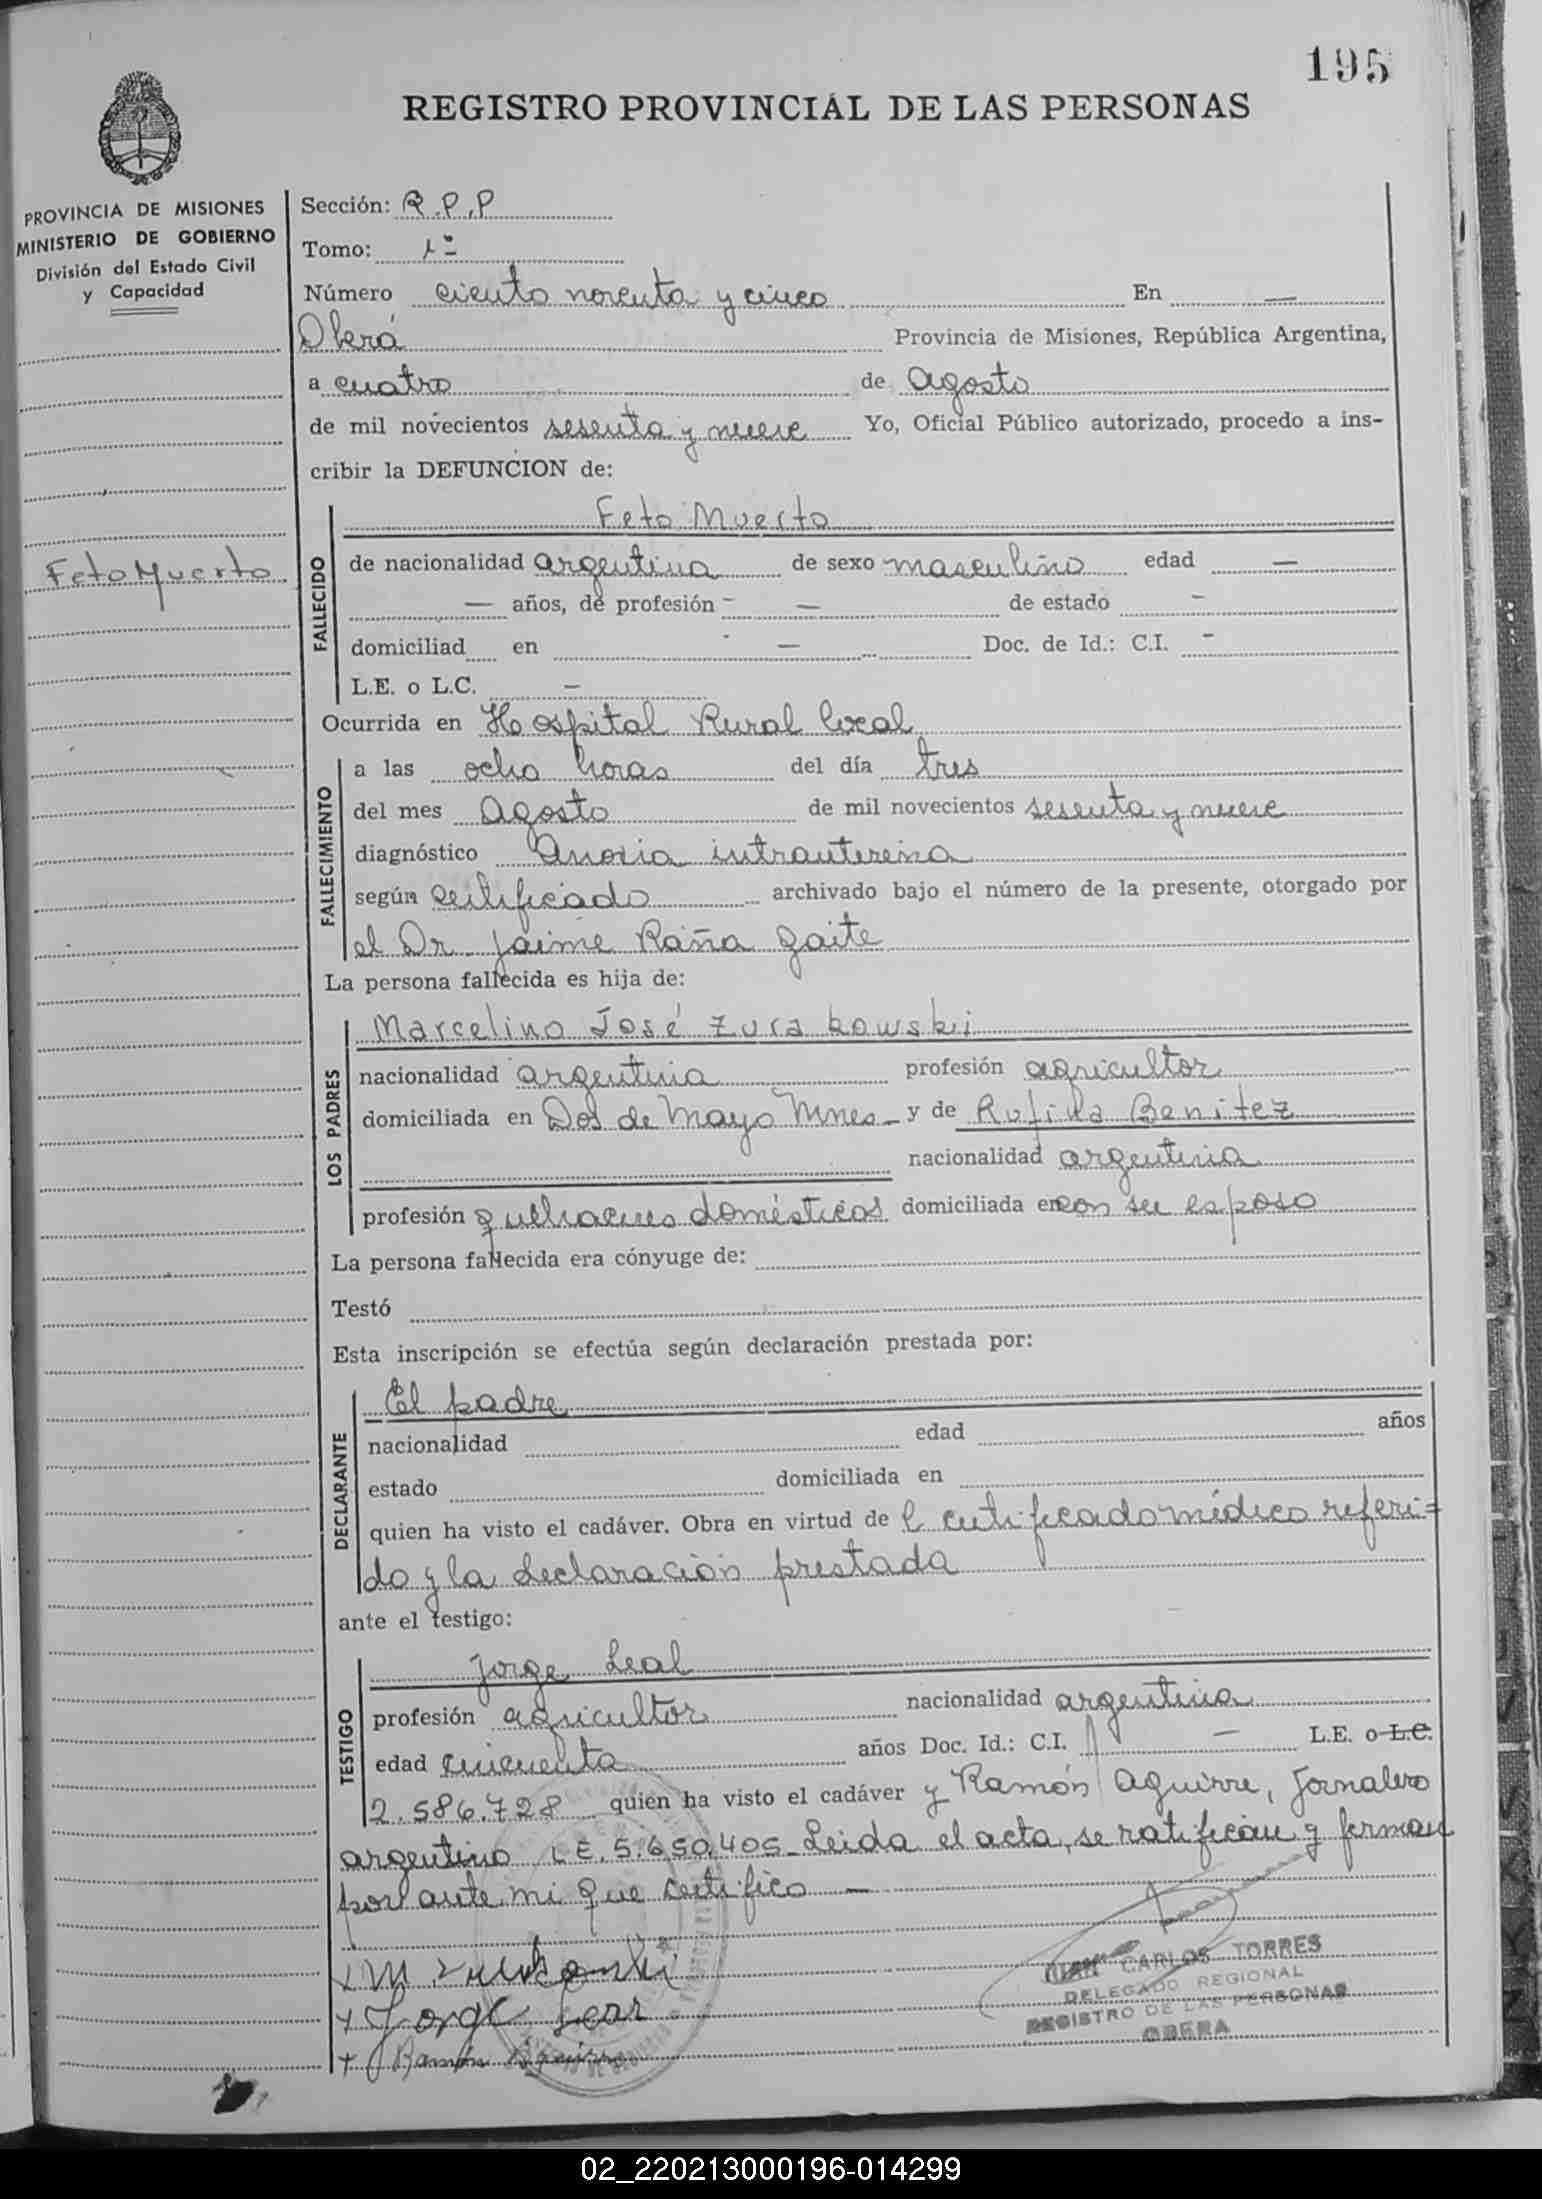 195
REGISTRO PROVINCIAL DE LAS PERSONAS
PROVINCIA DE MISIONES
MINISTERIO DE GOBIERNO
División del Estado Civil
y Capacidad
Feto Muerto
Sección: R.P.P
Tomo: 1º
Número ciento noventa y cinco En —
Oberá Provincia de Misiones, República Argentina,
a cuatro de Agosto
de mil novecientos sesenta y nueve Yo, Oficial Público autorizado, procedo a ins-
cribir la DEFUNCION de:
FALLECIDO
Feto Muerto
de nacionalidad argentina de sexo masculino edad —
— años, de profesión — de estado -
domiciliad en — Doc. de Id.: C.I. -
L.E. o L.C. -
Ocurrida en Hospital Rural local
FALLECIMIENTO
a las ocho horas del día tres
del mes Agosto de mil novecientos sesenta y nueve
diagnóstico Anoxia intrauterina
según certificado archivado bajo el número de la presente, otorgado por
el Dr. Jaime Raña Gaite
La persona fallecida es hija de:
LOS PADRES
Marcelino José Zurakowski
nacionalidad argentina profesión agricultor
domiciliada en Dos de Mayo Mnes - y de Rufila Benitez
nacionalidad argentina
profesión quehaceres domésticos domiciliada en con su esposo
La persona fallecida era cónyuge de:
Testó
Esta inscripción se efectúa según declaración prestada por:
DECLARANTE
El padre
nacionalidad edad años
estado domiciliada en
quien ha visto el cadáver. Obra en virtud de l certificado médico referi=
do y la declaración prestada
ante el testigo:
TESTIGO
Jorge Leal
profesión agricultor nacionalidad argentina
edad cincuenta años Doc. Id.: C.I. — L.E. o L.C.
2.586.728 quien ha visto el cadáver y Ramón Aguirre, Jornalero
argentino L E. 5.650.405 - Leida el acta, se ratifican y firman
por ante mi que certifico —
Jorge Leal
Ramón Aguirre
JUAN CARLOS TORRES
DELEGADO REGIONAL
REGISTRO DE LAS PERSONAS
OBERA
02_220213000196-014299